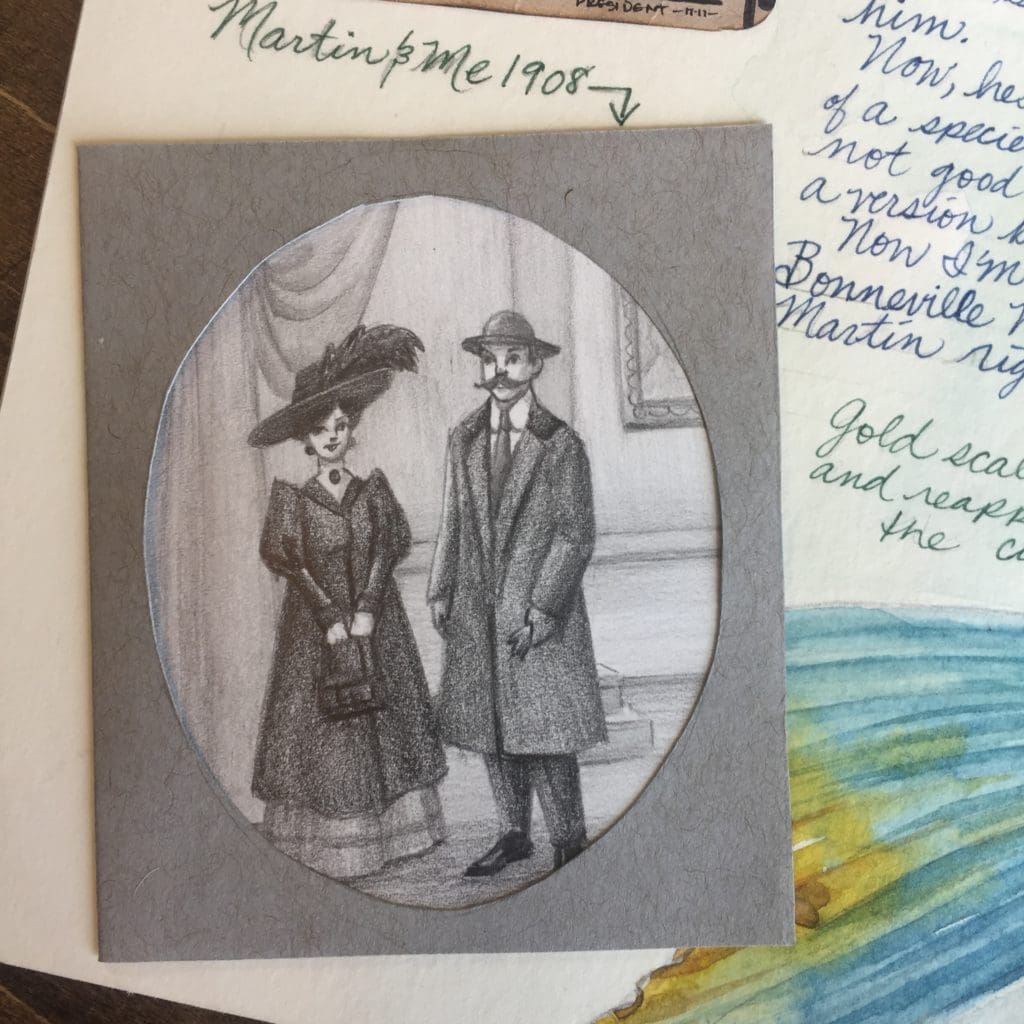 PRESIDENT -17-11-
Martin & Me 1908
him.
Now, he's
of a specie
not good
a version
Now I'm
Bonneville
Martin
Gold
and
the